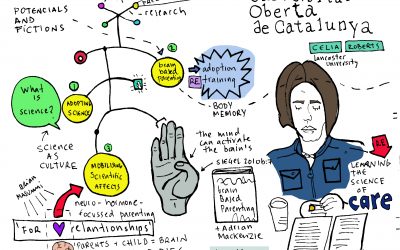 POTENCIALS
AND
FICTIONS
research
Oberta
de Catalunya
CELIA ROBERTS
Lancaster
University
What
is
science?
ADOPTING
SCIENCE
brain
based
PARENTING
adoption
RE training
BODY
MEMORY
SCIENCE
AS
CULTURE
MOBILISING
SCIENTIFIC
AFFECTS
the mind
can activate
the brain's
SIEGEL 2010b:7
brain
Based
Parenting
+ Adrian
Mackenzie
neuro-hormone-
focussed parenting
FOR relationships
PARENTS + CHILD = BRAIN
RE
LEARNING
THE SCIENCE
OF
care